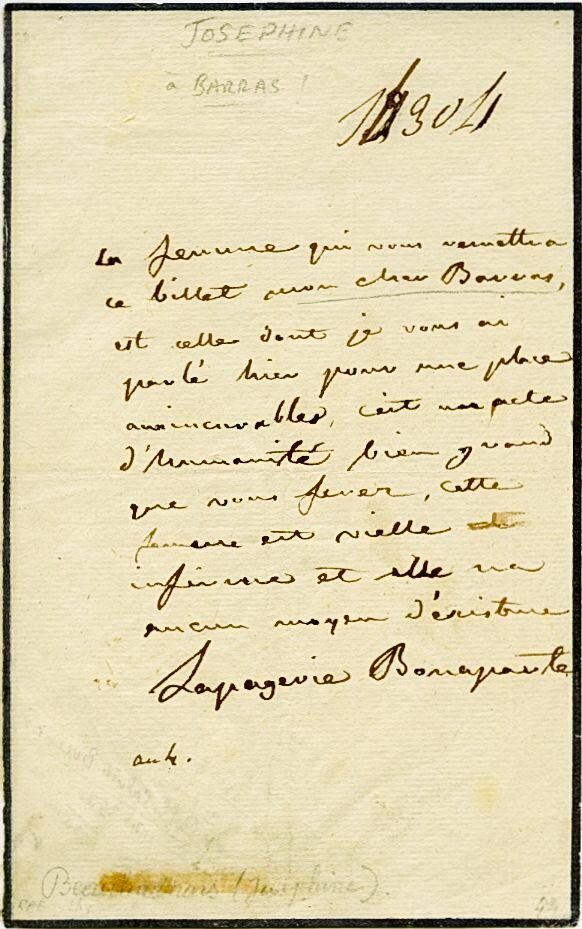 JOSEPHINE
à BARRAS !
304
la femme qui vous remettra
ce billet mon cher Barras,
est celle dont je vous ai
parlé hier pour une place
aux incurables, c'est un acte
d'humanité bien grand
que vous ferez, cette
femme est vielle
infirme et elle na
aucun moyen d'existence
Lapagerie Bonaparte
an 4.
Beauharnais (Josephine).